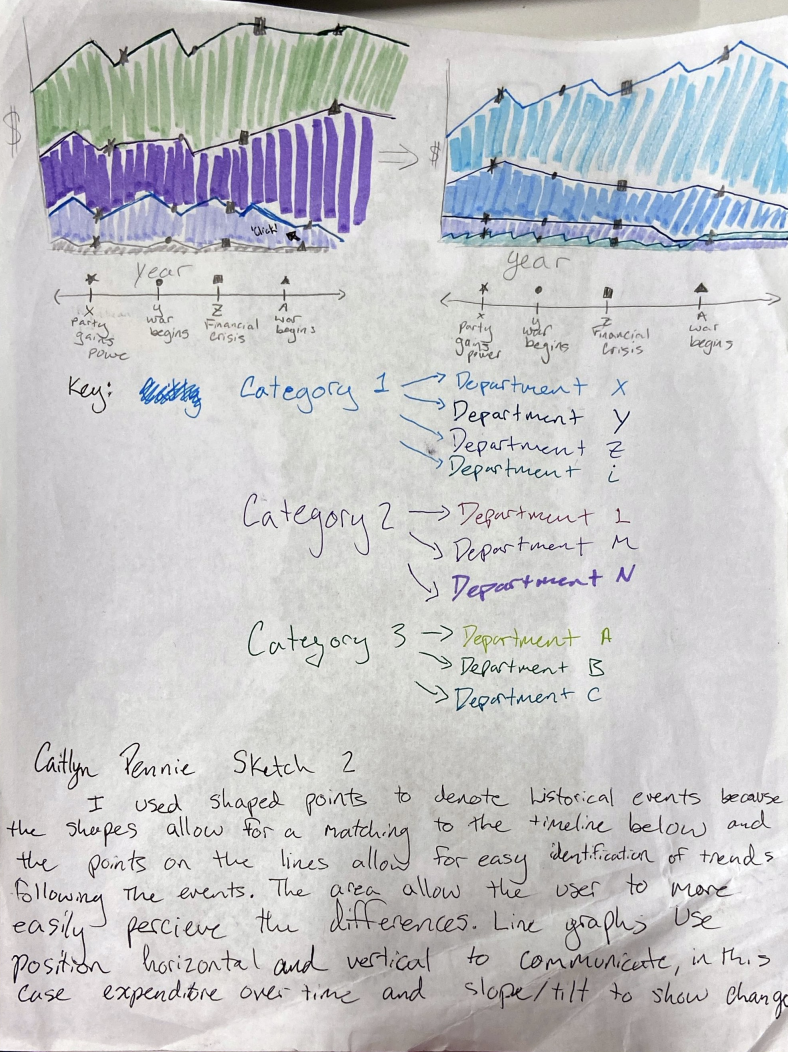 $
"Click!"
year
X
Party
gains
powe
y
war
begins
Z
Financial
Crisis
A
war
begins
$
year
X
Party
gains
power
y
war
begins
Z
Financial
Crisis
A
war
begins
Key:
Category 1
Department X
Department y
Department Z
Department i
Category 2
Department L
Department M
Department N
Category 3
Department A
Department B
Department C
Caitlyn Pennie Sketch 2
I used shaped points to denote historical events because
the shapes allow for a matching to the timeline below and
the points on the lines allow for easy identification of trends
following the events. The area allow the user to more
easily percieve the differences. Line graphs use
position horizontal and vertical to communicate, in this
case expenditire over time and slope/tilt to show change